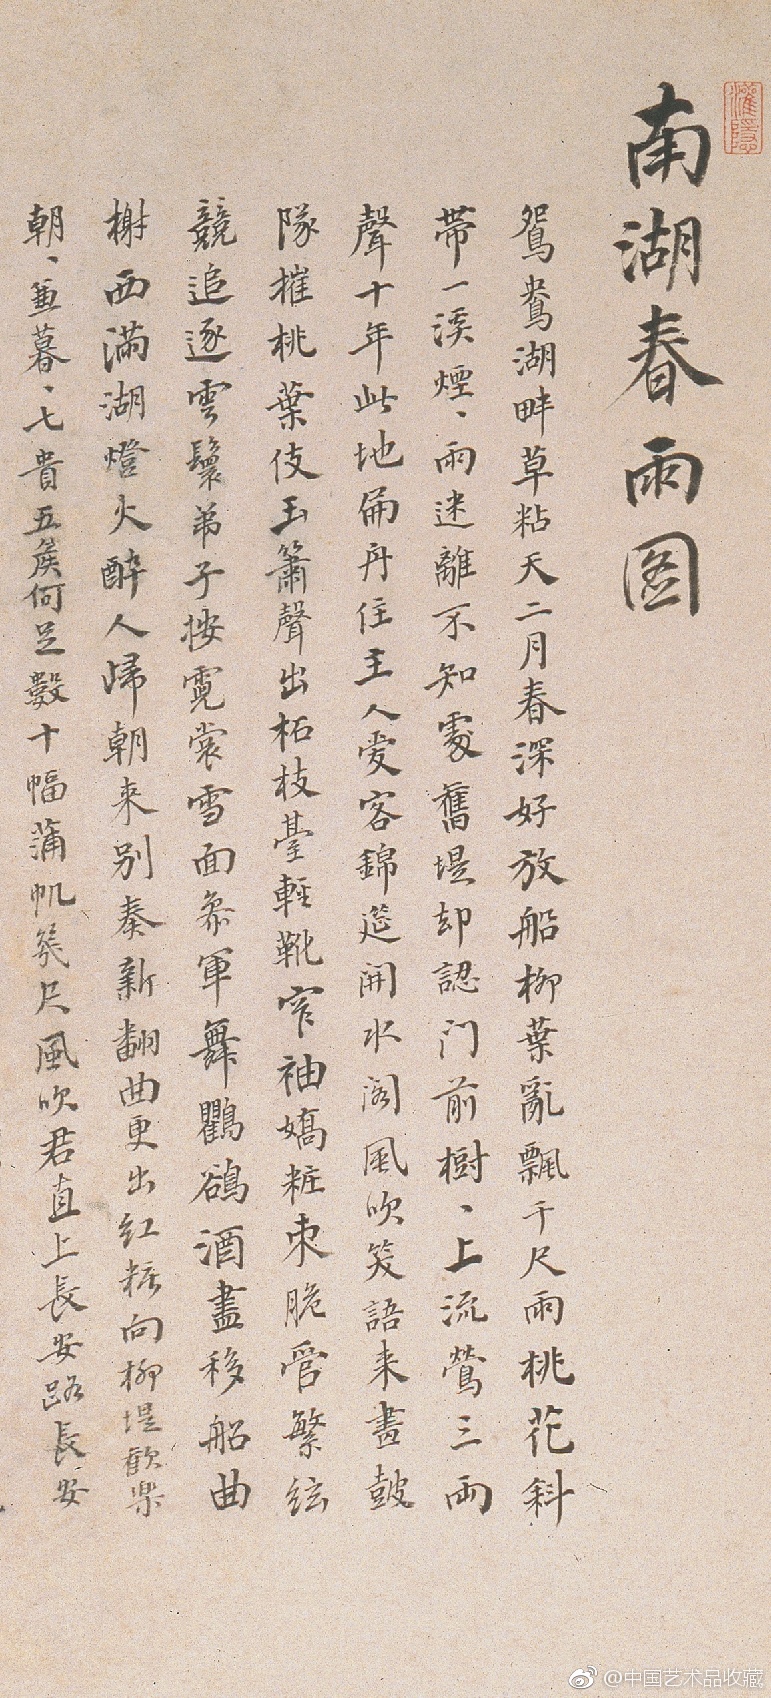 南湖春雨图
鴛鴦湖畔草粘天二月春深好放船柳葉亂飄千尺雨桃花斜
帶一溪煙、雨迷離不知處舊堤却認门前樹、上流鶯三兩
聲十年此地扁舟住主人愛客錦筵開水阁風吹笑語来畫鼓
隊摧桃葉伎玉簫聲出柘枝臺輕靴窄袖嬌粧束脆管繁絃
競追逐雲鬟弟子按霓裳雪面参軍舞鸜鵒酒盡移船曲
榭西滿湖燈火醉人歸朝来别奏新翻曲更出红粧向柳堤歡樂
朝、兼暮、七貴五侯何足數十幅蒲帆幾尺風吹君直上長安路長安
灌隱
@中国艺术品收藏